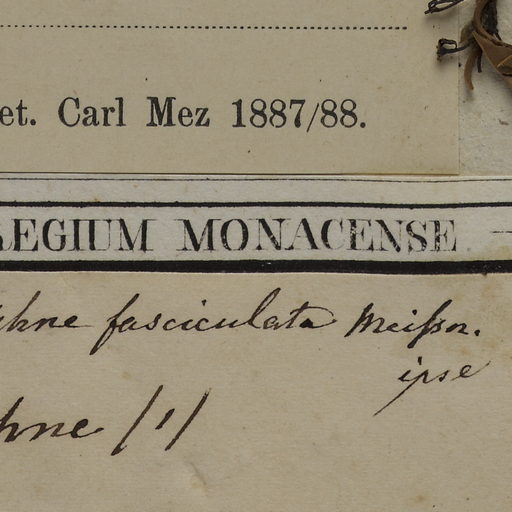 et. Carl Mez 1887/88.
REGIUM MONACENSE
hne fasciculata Meißn.
ipse
hne /1/